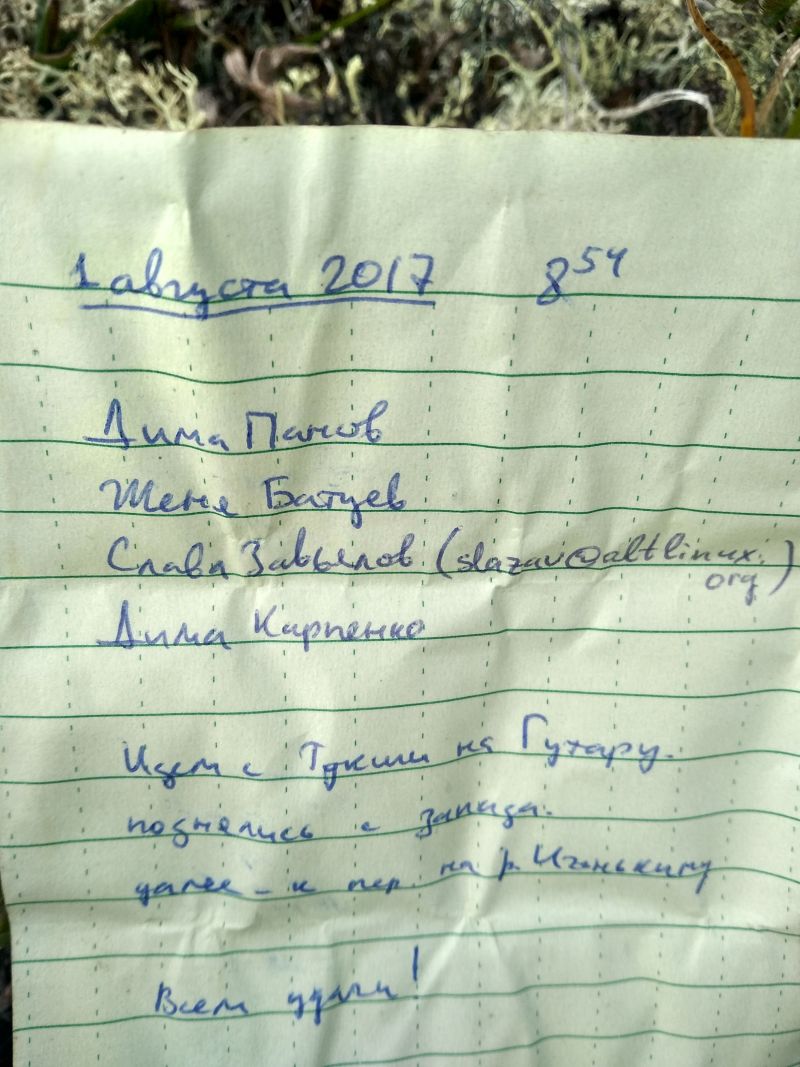 1 августа 2017 8⁵⁴
Дима Панов
Женя Батуев
Слава Завьялов (slazav@altlinux.
org)
Дима Карпенко
Идем с на Гутару.
поднялись с запада.
далее – к пер. на р.
Всем удачи!